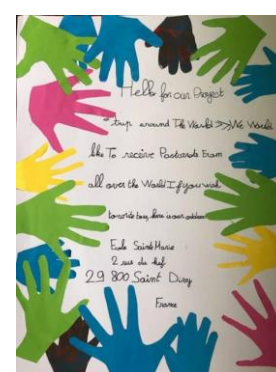 Hello for our Project
"trip around The World >> We Would
like To receive Postcards From
all over the World If you wish
to write to us, here is our address
École Sainte Marie
2 rue du
29 800 Saint Divy
France